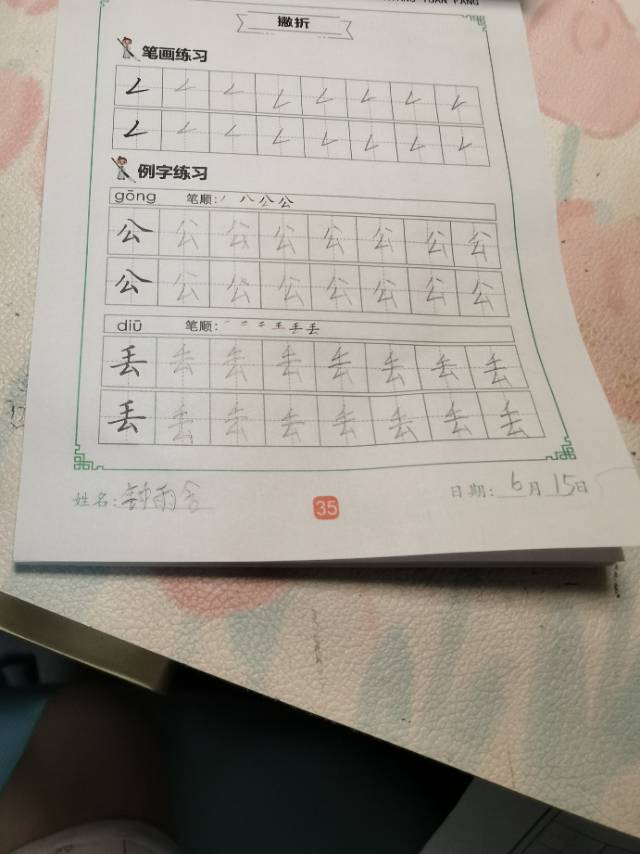 撇折
笔画练习
𠃋 𠃋 𠃋 𠃋 𠃋 𠃋 𠃋 𠃋
𠃋 𠃋 𠃋 𠃋 𠃋 𠃋 𠃋 𠃋
例字练习
gōng 笔顺: 公 公
公 公 公 公 公 公 公 公
公 公 公 公 公 公 公 公
diū 笔顺: 丢 丢
丢 丢 丢 丢 丢 丢 丢 丢
丢 丢 丢 丢 丢 丢 丢 丢
姓名: 雨 日期: 6月15日
35